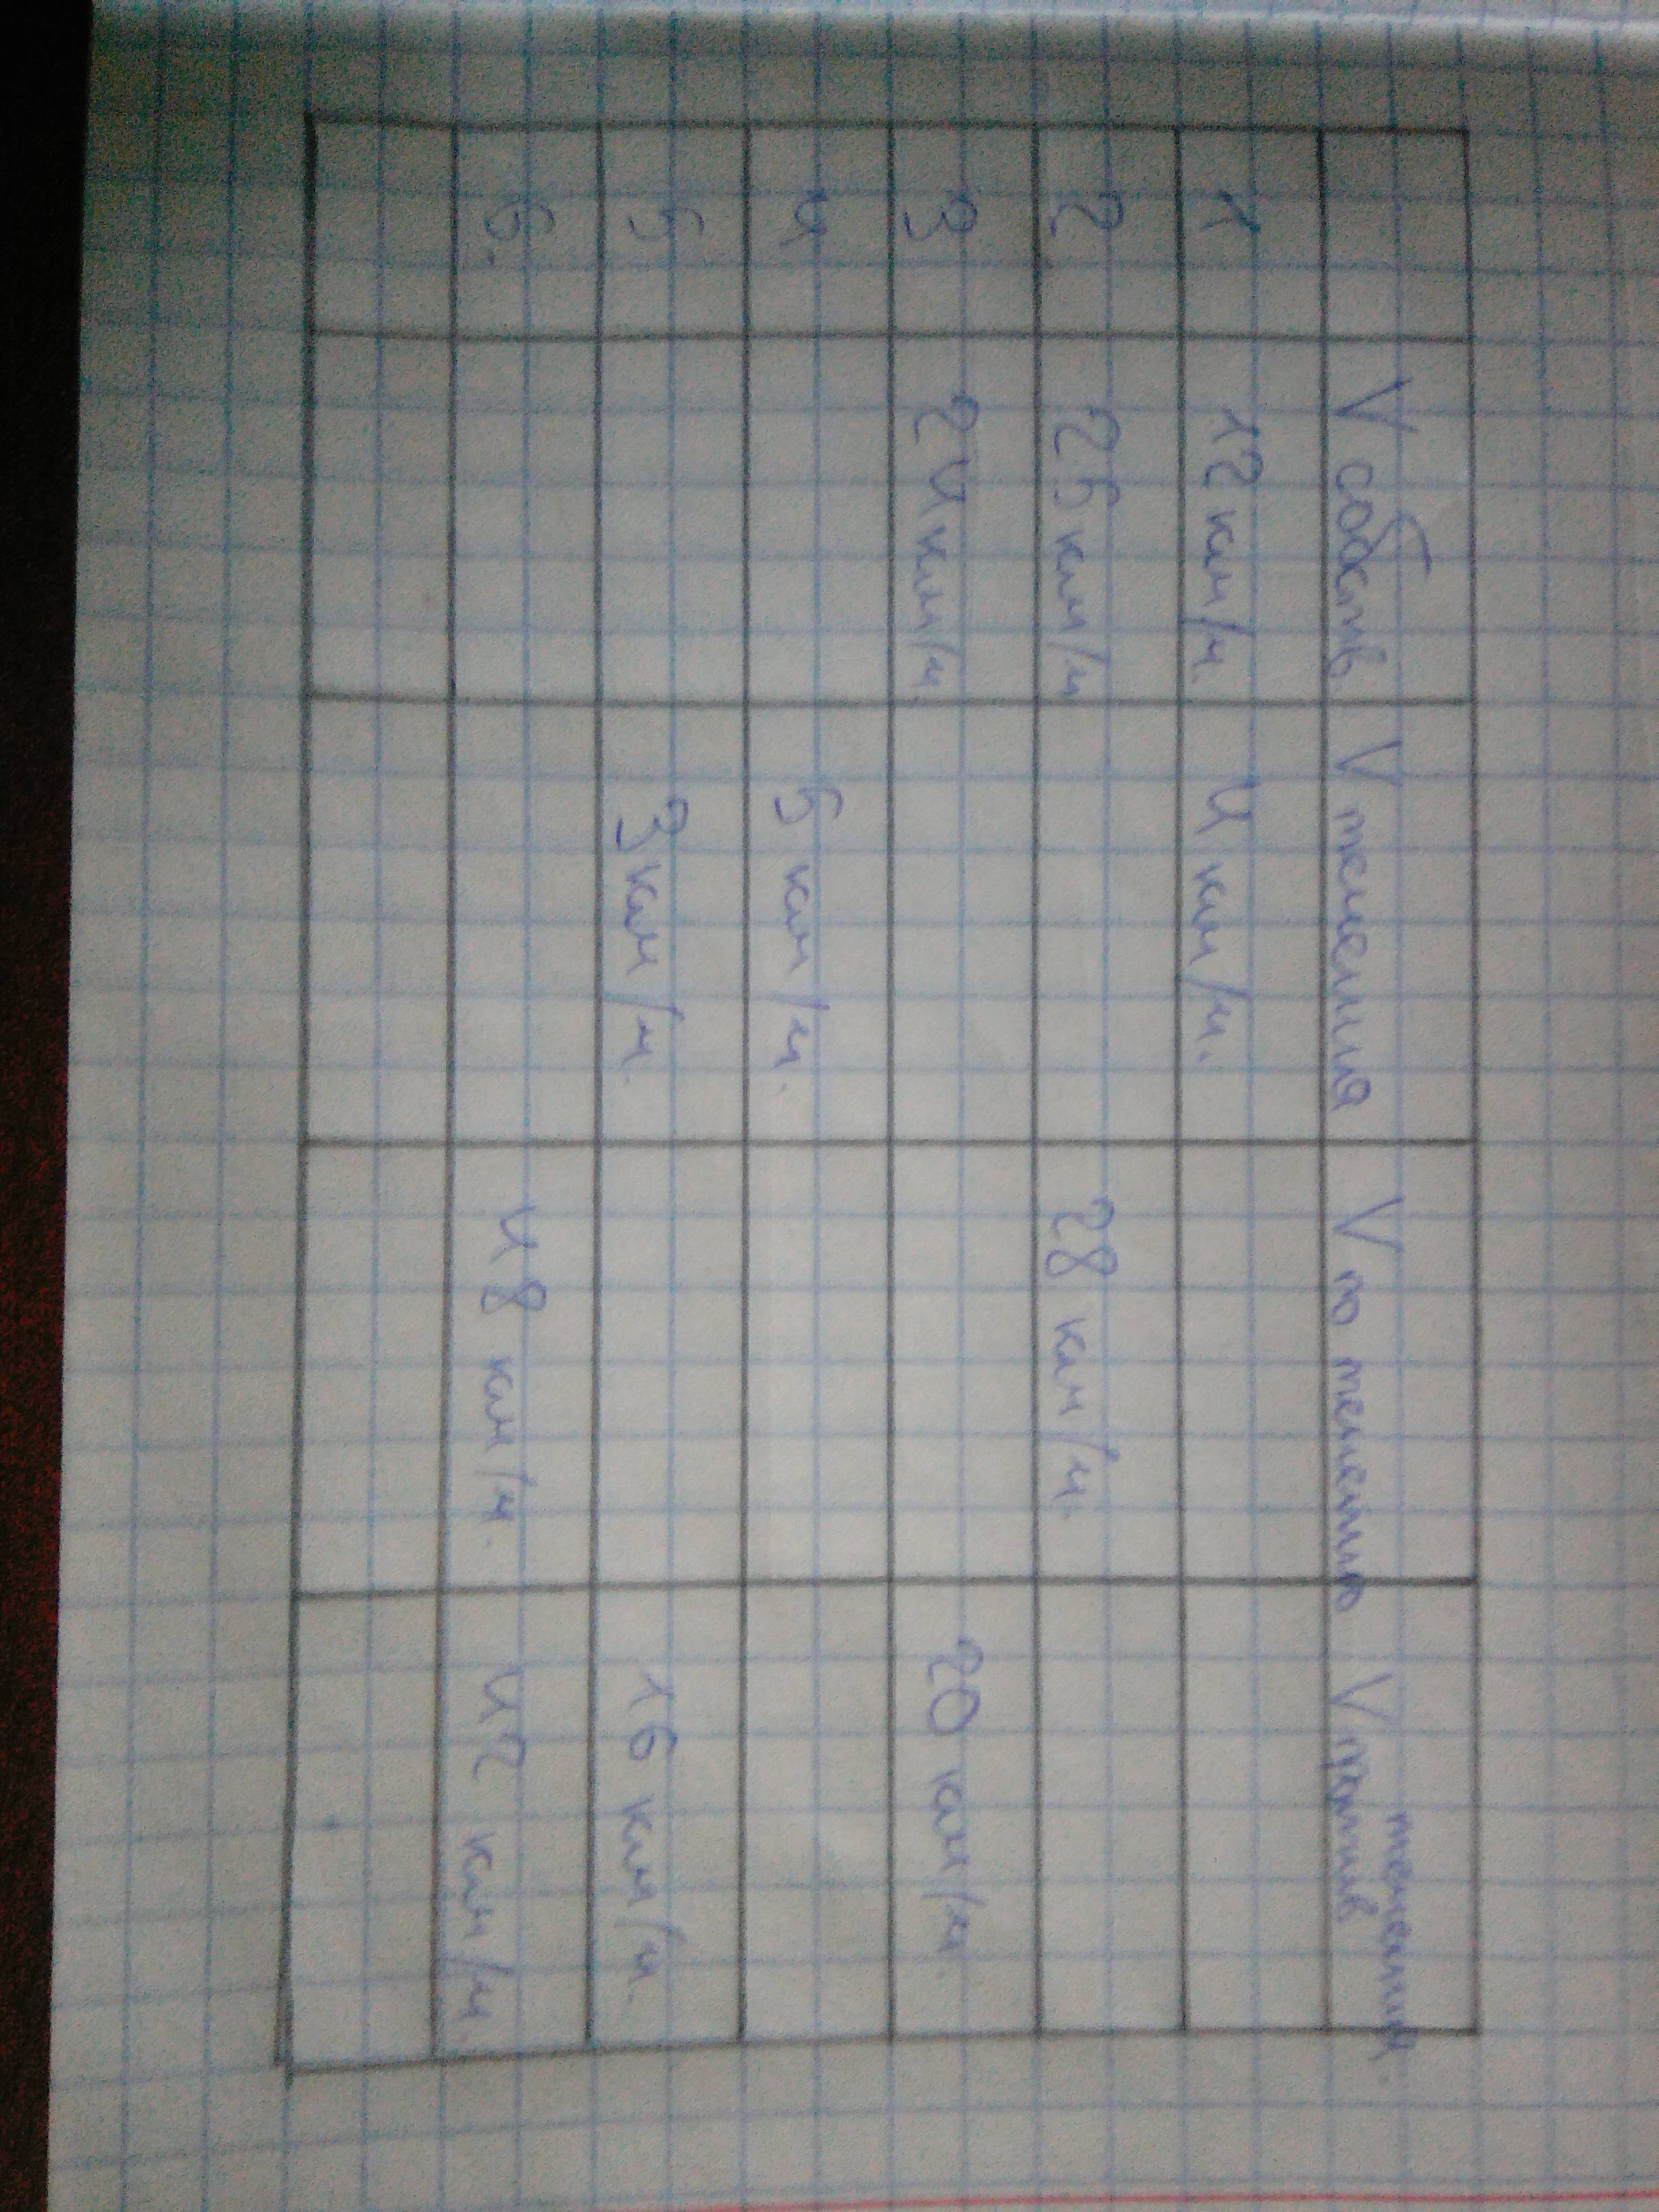 V собств. V течения V по течению V против течения.
1 12 км/ч. 4 км/ч.
2 25 км/ч 28 км/ч.
3 24 км/ч. 20 км/ч.
4 5 км/ч.
5 3 км/ч. 16 км/ч.
6. 48 км/ч. 42 км/ч.